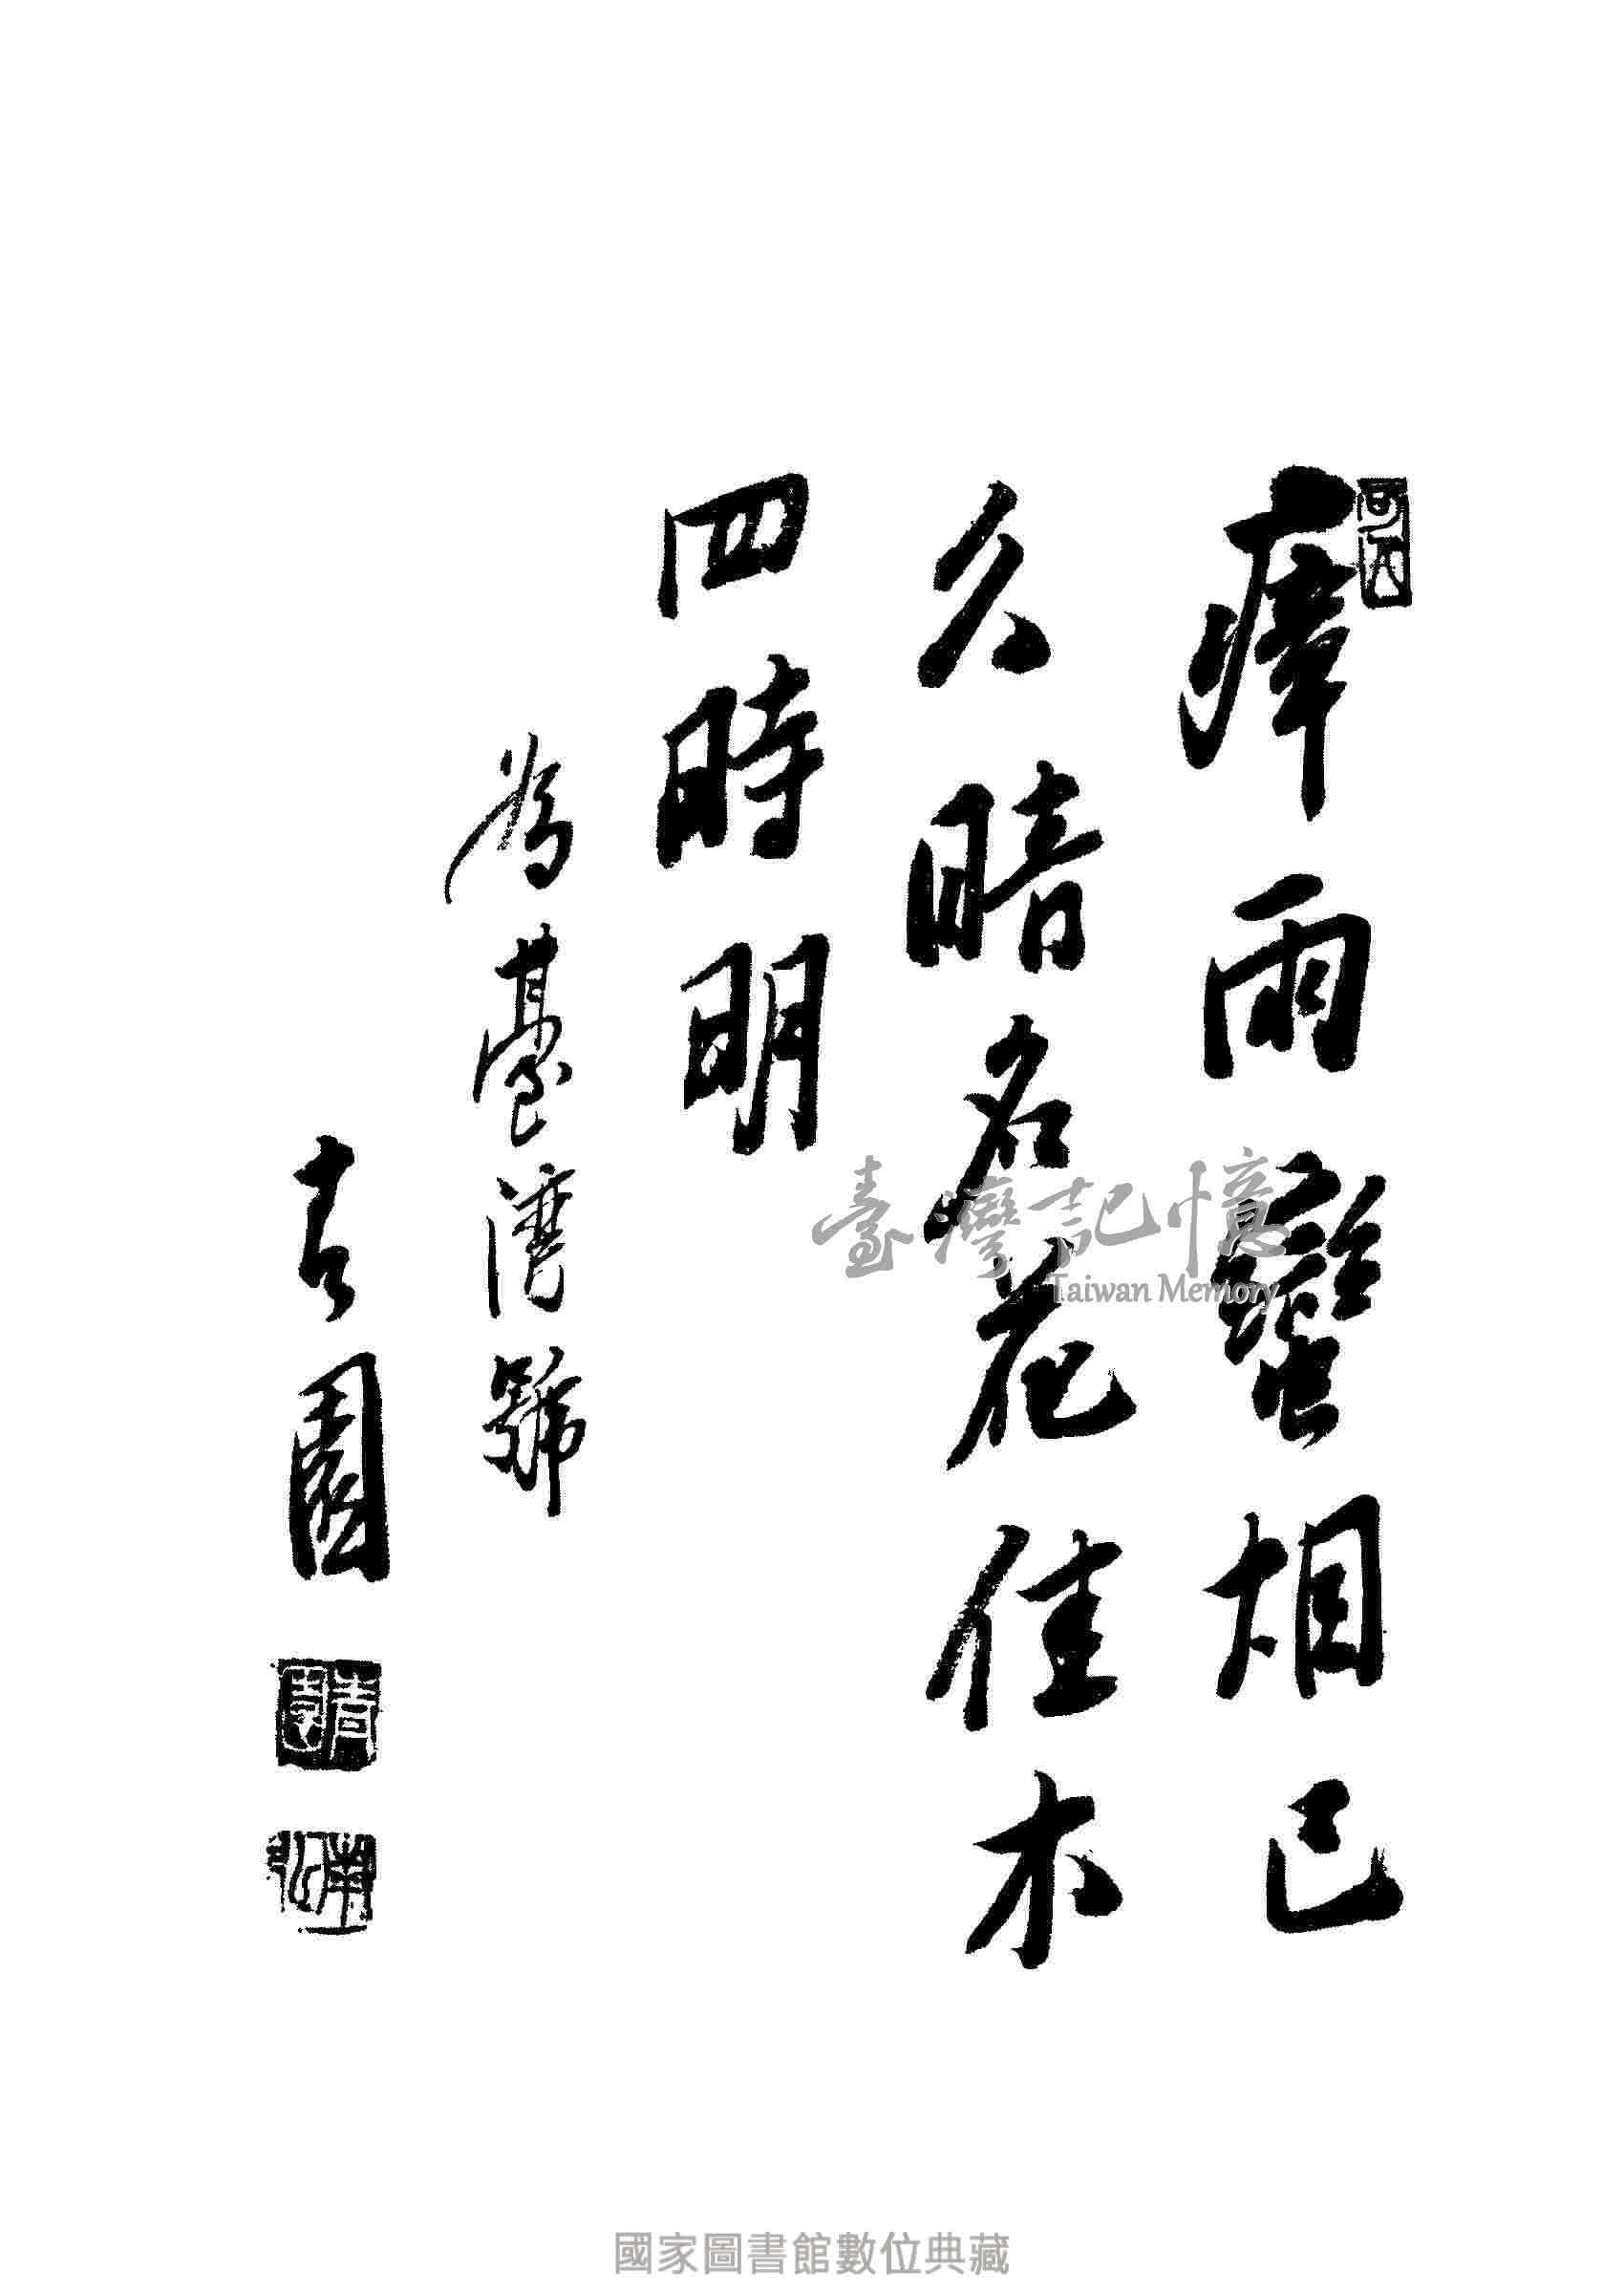 瘴雨蠻烟已
久暗名花佳木
四時明
為臺灣號
古園
臺灣記憶
Taiwan Memory
國家圖書館數位典藏